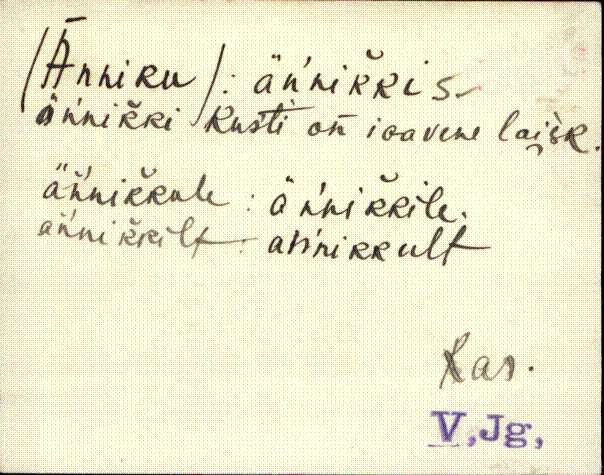 (Änniku): än'nik̆kis
än'nik̆ki Kusti on iɑavene laisk.
äň'nik̆kule : än'nik̆kile.
än'nik̆kilt : än'nikkult
Kas.
V, Jg,